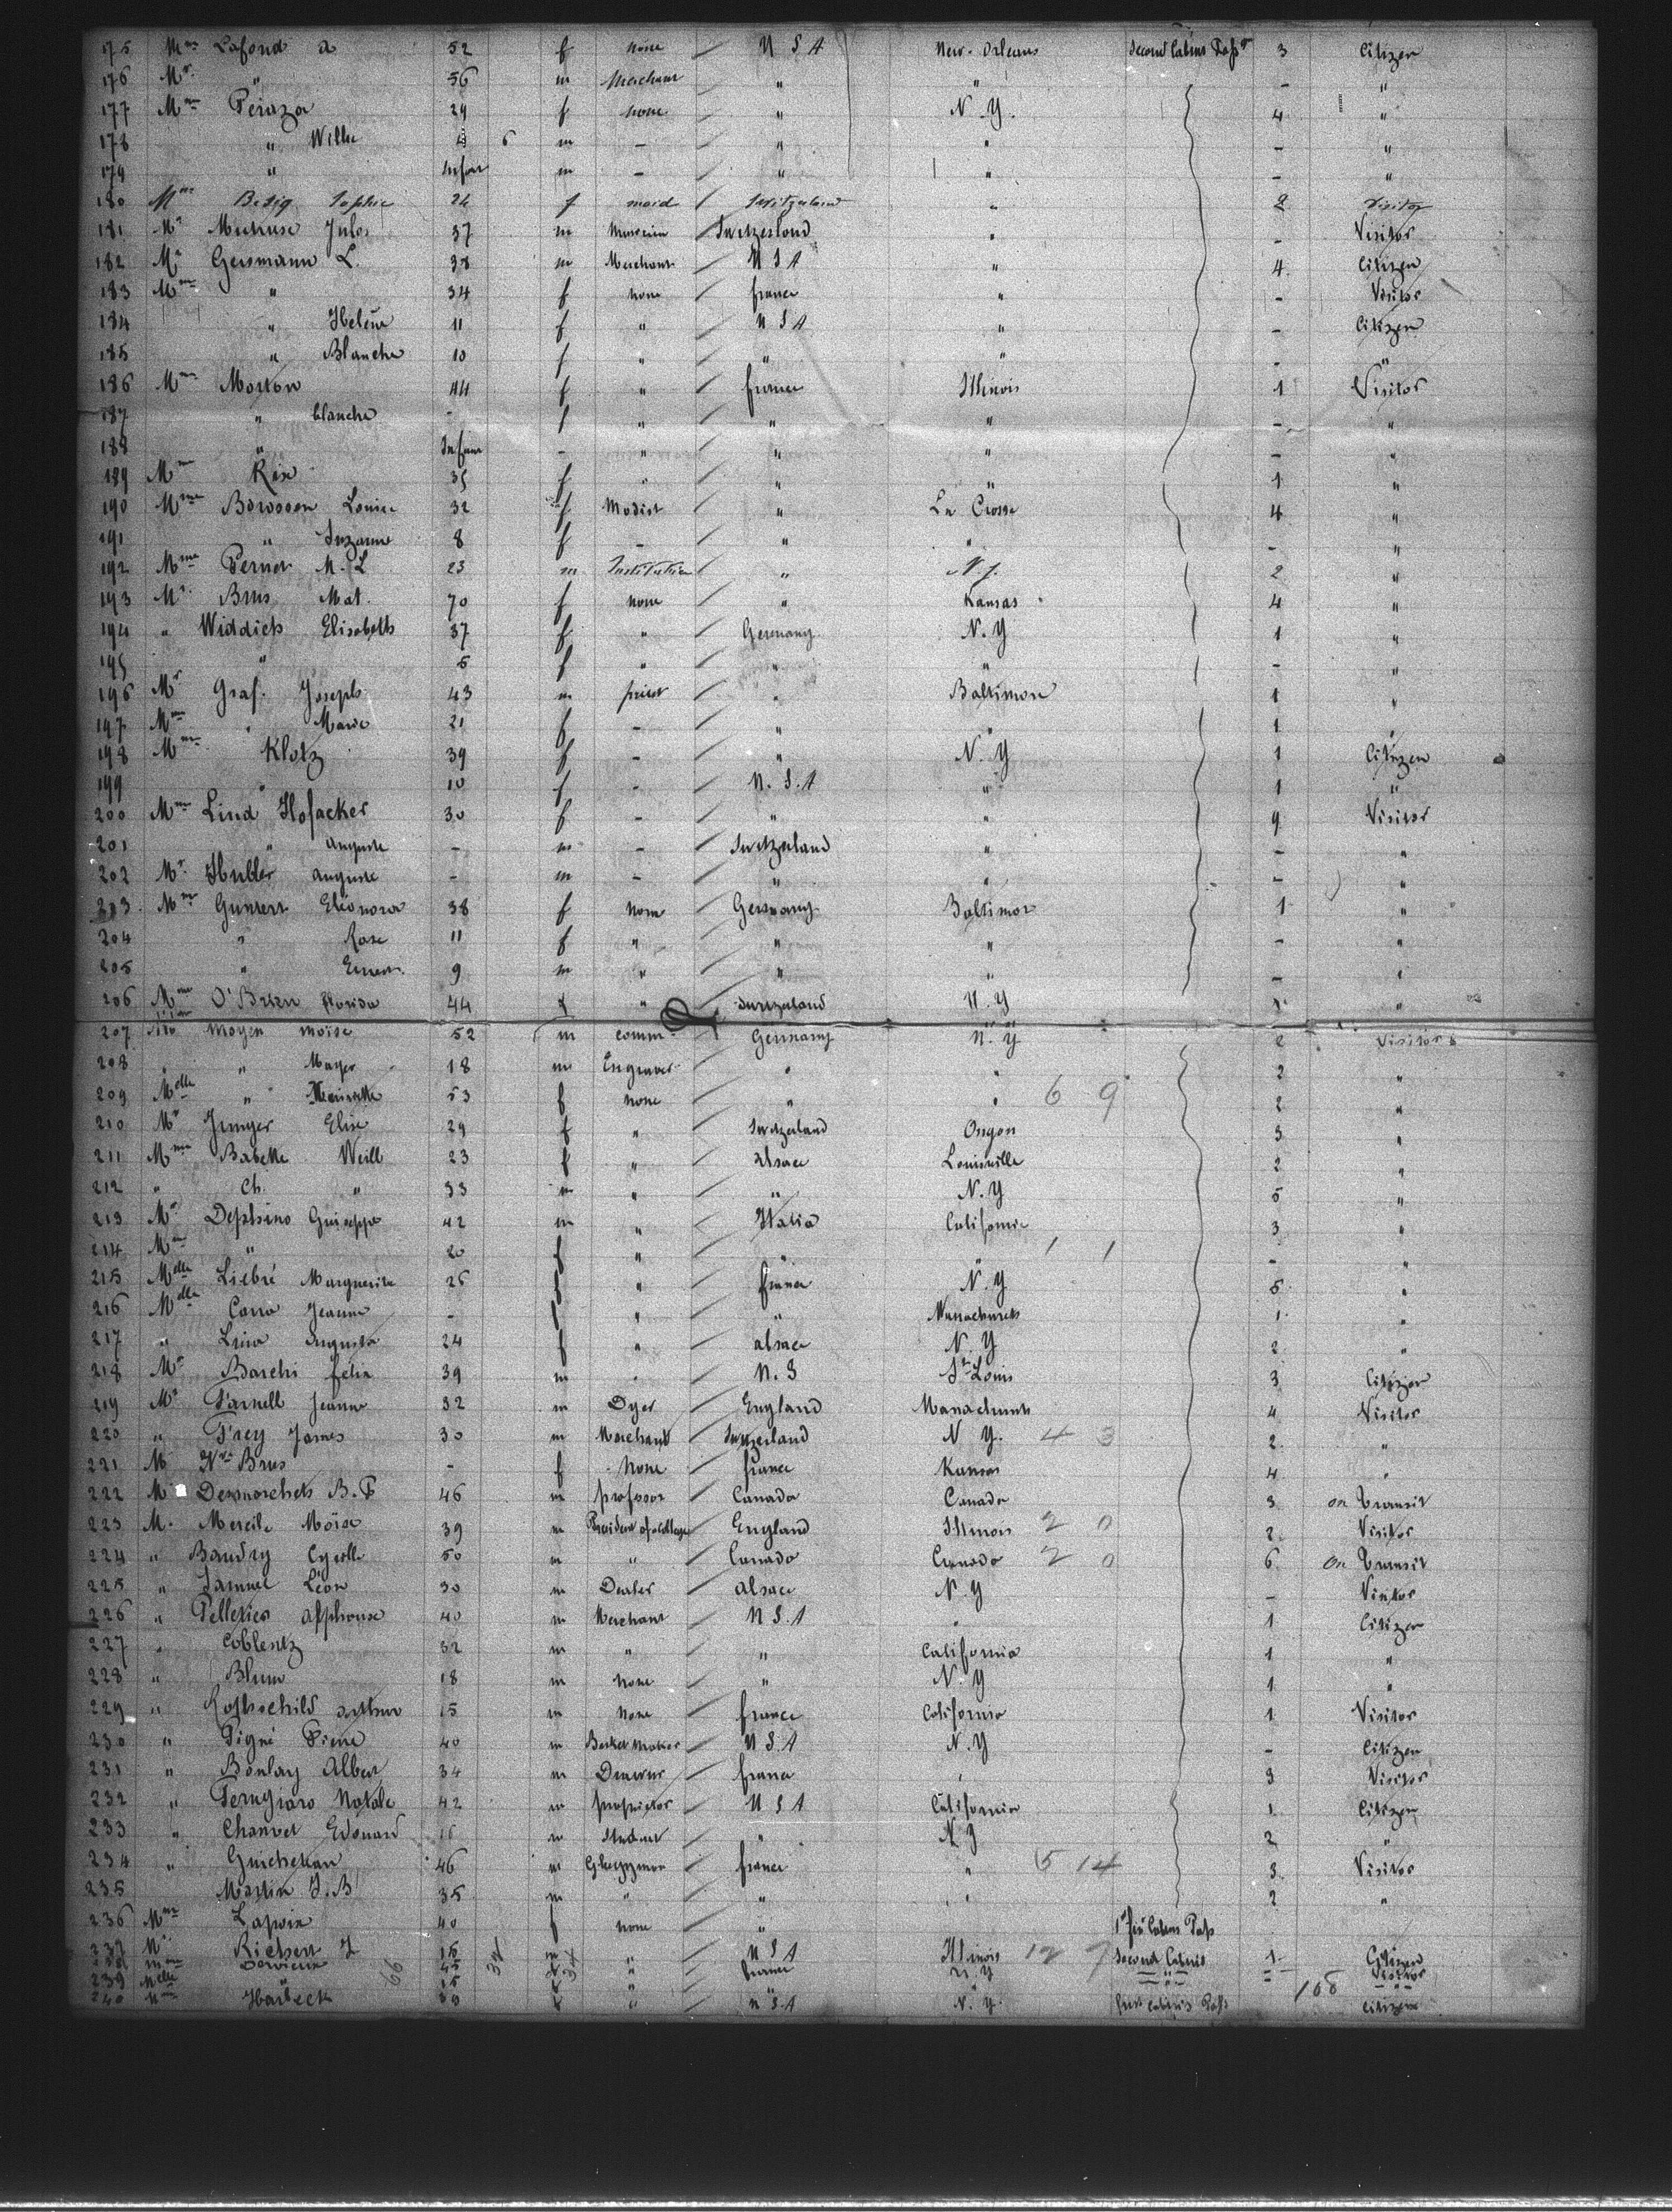 175 Mme Lafond a 52 f none U S A New-Orleans Second Cabins Pass 3 Citizen
176 Mr " 56 m Merchant " " - "
177 Mme Peraza 29 f none " N.Y. 4 "
178 " Willie 4 6 m - " " - "
179 " Infant m - " " - "
180 Mme Betig Sophie 24 f maid Switzerland " 2 Visitor
181 Mr Jules 37 m Switzerland " - Visitor
182 Mr Gersmann L. 38 m Merchant U S A " 4 Citizen
183 Mme " 34 f none france " - Visitor
184 " Helene 11 f " U S A " - Citizen
185 " Blanche 10 f " " " - "
186 Mme Morton 44 f " france Illinois 1 Visitor
187 " blanche - f " " " - "
188 " Infant - " " " - "
189 Mme Rose 35 f " " " 1 "
190 Mme Louise 32 f Modist " La Crosse 4 "
191 " Suzanne 8 f - " " - "
192 Mme Pernet M. L 23 m " N.J. 2 "
193 Mr Brus Mat. 70 f none " Kansas 4 "
194 " Widdich Elisabeth 37 f " Germany N.Y 1 "
195 " 5 f " " " - "
196 Mr Graf. Joseph 43 m priest " Baltimore 1 "
197 Mme " Marie 21 f - " " 1 "
198 Mme Klotz 39 f - " N.Y 1 Citizen
199 " 10 f - U.S.A " 1 "
200 Mme Lind Hofacker 30 f - " " 9 Visitor
201 " Auguste - m - Switzerland " - "
202 Mr Hubler Auguste - m - " " - "
203 Mme Guntert Eléonora 38 f None Germany Baltimor 1 "
204 " Rose 11 f " " " - "
205 " Ernest 9 m " " " - "
206 Mme O'Brien 44 f " Switzerland N.Y 1 "
207 Moyen moïse 52 m comm. Germany N.Y 2 Visitors
208 " Mayer 18 m Engraver " " 2 "
209 Melle " Henriette 53 f none " " 6 9 2 "
210 Mr Junger Elise 29 f " Switzerland Orégon 3 "
211 Mme Babette Weill 23 f " Alsace Louisville 2 "
212 " Ch. " 33 m " " N.Y 5 "
213 Mr Delphino Guiseppe 42 m " Italia Californie 3 "
214 Mme " 20 f " " " 1 1 - "
215 Melle Liebré Marguerite 25 f " france N.Y 5 "
216 Melle Carra Jeanne - f " " Massachusets 1 "
217 " Augusta 24 f " alsace N.Y 2 "
218 Mr Barchi félix 39 m " U.S St Louis 3 Citizen
219 Mr Farnell Jeanne 32 m Dyer England 4 Visitor
220 " Frey James 30 m Merchant Switzerland N Y. 4 3 2 "
221 M Brus - f None france Kansas 4 "
222 M Desmarchets B. F 46 m professor Canada Canada 3 on transit
223 M. Mercile Moïse 39 m President of college England Illinois 2 0 2 Visitor
224 " Baudry Cyrille 50 m " Canada Canada 2 0 6 on transit
225 " Samuel Léon 30 m Dealer alsace N.Y - Visitor
226 " Pelletier alphonse 40 m Merchant U S.A " 1 Citizen
227 " Coblentz 32 m " " California 1 "
228 " Blum 18 m None " N.Y 1 "
229 " Rothschild arthur 15 m None france California 1 Visitor
230 " Pigné Pierre 40 m Basket maker U S.A N.Y - Citizen
231 " Boulay Albert 34 m france " 3 Visitor
232 " Natale 42 m proprietor U S A California 1 Citizen
233 " Chanvet Edouard m Student " N Y 2 "
234 " Guicheteau 46 m Clergyman france " 5 14 3 Visitor
235 Martin J. B 35 m " " " 2 "
236 Mme Lapoix 40 f none " 1st Cabins Pass
237 Mr Richert J 15 m " U S A Illinois 12 7 Second Cabins 1 Citizen
238 Mme 45 f " france N Y " - Visitor
239 Melle " 15 f " " - "
66 34 34 108
240 Mme Harbeck f " U S.A N.Y. first Cabins Pass Citizen